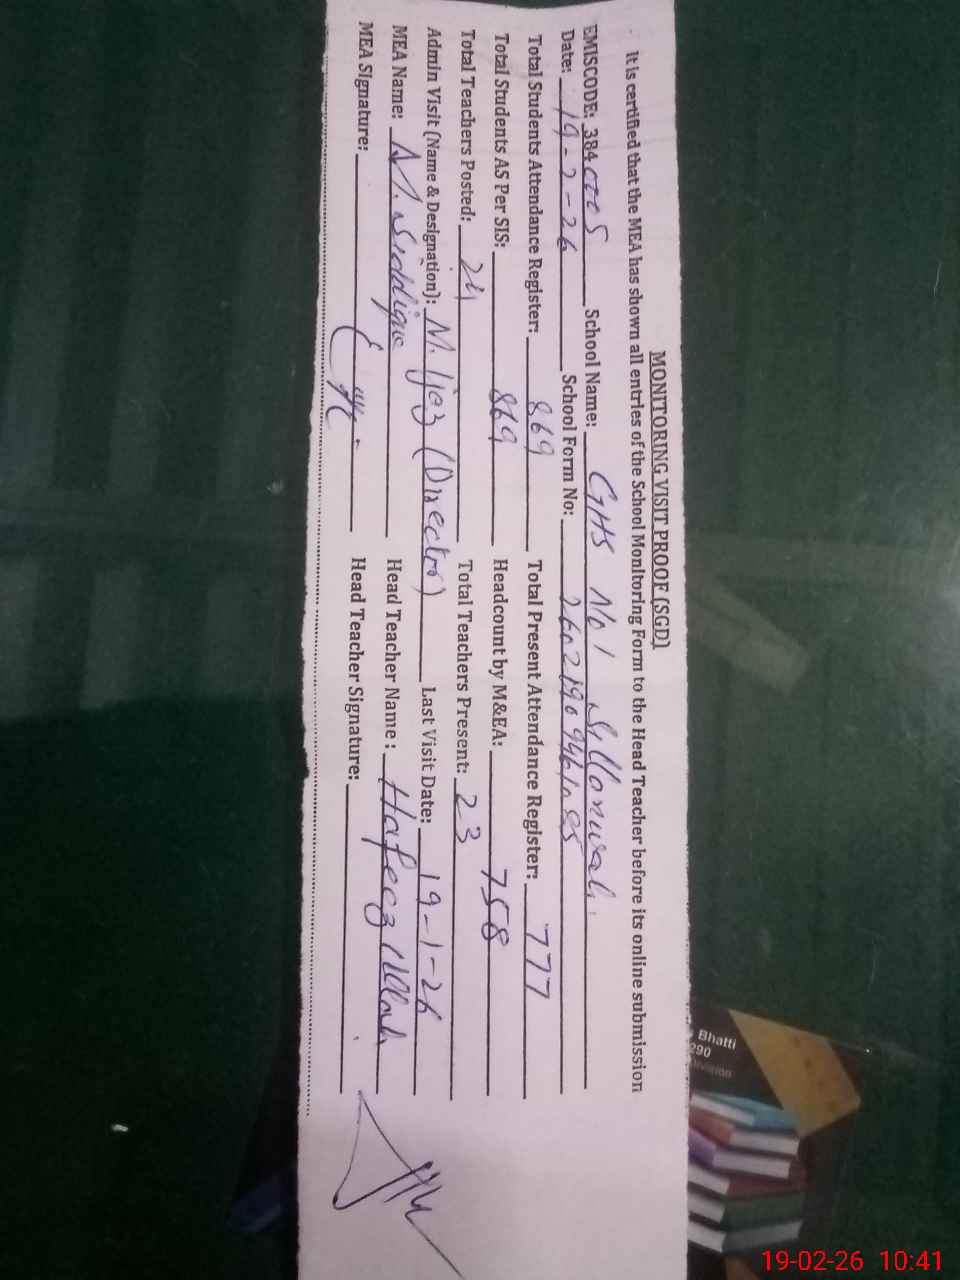 MONITORING VISIT PROOF (SGD)
It is certified that the MEA has shown all entries of the School Monitoring Form to the Head Teacher before its online submission
EMISCODE: 38400005 School Name: GHS No 1 Sillanwali
Date: 19-2-26 School Form No:
Total Students Attendance Register: 869 Total Present Attendance Register: 777
Total Students AS Per SIS: 869 Headcount by M&EA: 758
Total Teachers Posted: 24 Total Teachers Present: 23
Admin Visit (Name & Designation): M. Ijaz (Director) Last Visit Date: 19-1-26
MEA Name: M. Siddique Head Teacher Name: Hafeez Ullah
MEA Signature: Head Teacher Signature:
Bhatti
290
Division
19-02-26 10:41